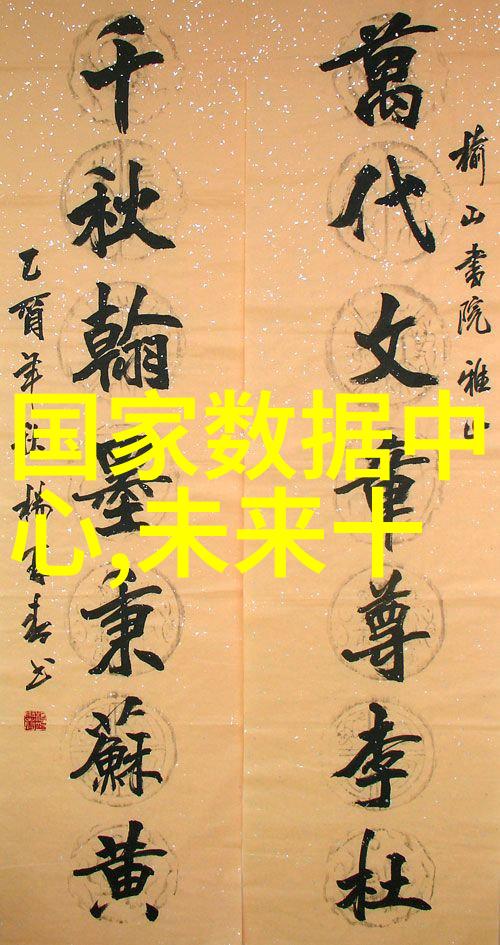 榆山書院雅正
萬代文章尊李杜
千秋翰墨秉蘇黄
乙酉年秋楊書
国家数据中
心,未来十